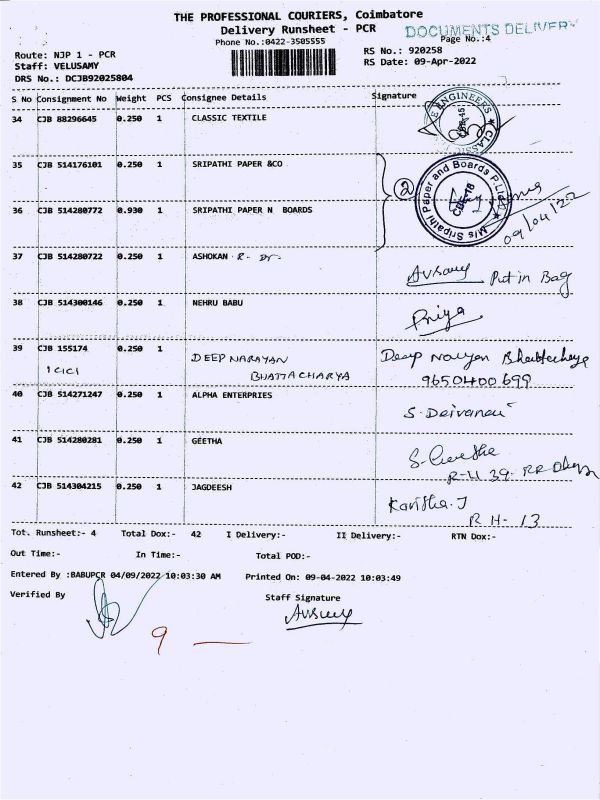 THE PROFESSIONAL COURIERS, Coimbatore
DOCUMENTS DELIVERY
Delivery Runsheet - PCR
Page No.:4
Phone No.:0422-3505555
RS No.: 920258
Route: NJP 1 - PCR
Staff: VELUSAMY
RS Date: 09-Apr-2022
DRS No.: DCJB92025804
S No Consignment No Weight PCS Consignee Details Signature
34 CJB 88296645 0.250 1 CLASSIC TEXTILE
ENGINEERS CLASSIC
35 CJB 514176101 0.250 1 SRIPATHI PAPER &CO
2
M/s Sripathi Paper and Boards P.Ltd
CBE-18
36 CJB 514280772 0.930 1 SRIPATHI PAPER N BOARDS
09/04/22
37 CJB 514280722 0.250 1 ASHOKAN R.
Put in Bag
38 CJB 514300146 0.250 1 NEHRU BABU
Priya
39 CJB 155174 0.250 1 DEEP NARAYAN
ICICI BHATTACHARYA
Deep Narayan Bhattacharya
9650400699
40 CJB 514271247 0.250 1 ALPHA ENTERPRIES
S. Deivanai
41 CJB 514280281 0.250 1 GEETHA
S. Geetha
R-H 39
42 CJB 514304215 0.250 1 JAGDEESH
Kavitha.J
RH-13
Tot. Runsheet:- 4 Total Dox:- 42 I Delivery:- II Delivery:- RTN Dox:-
Out Time:- In Time:- Total POD:-
Entered By :BABUPCR 04/09/2022 10:03:30 AM Printed On: 09-04-2022 10:03:49
Verified By Staff Signature
9 —